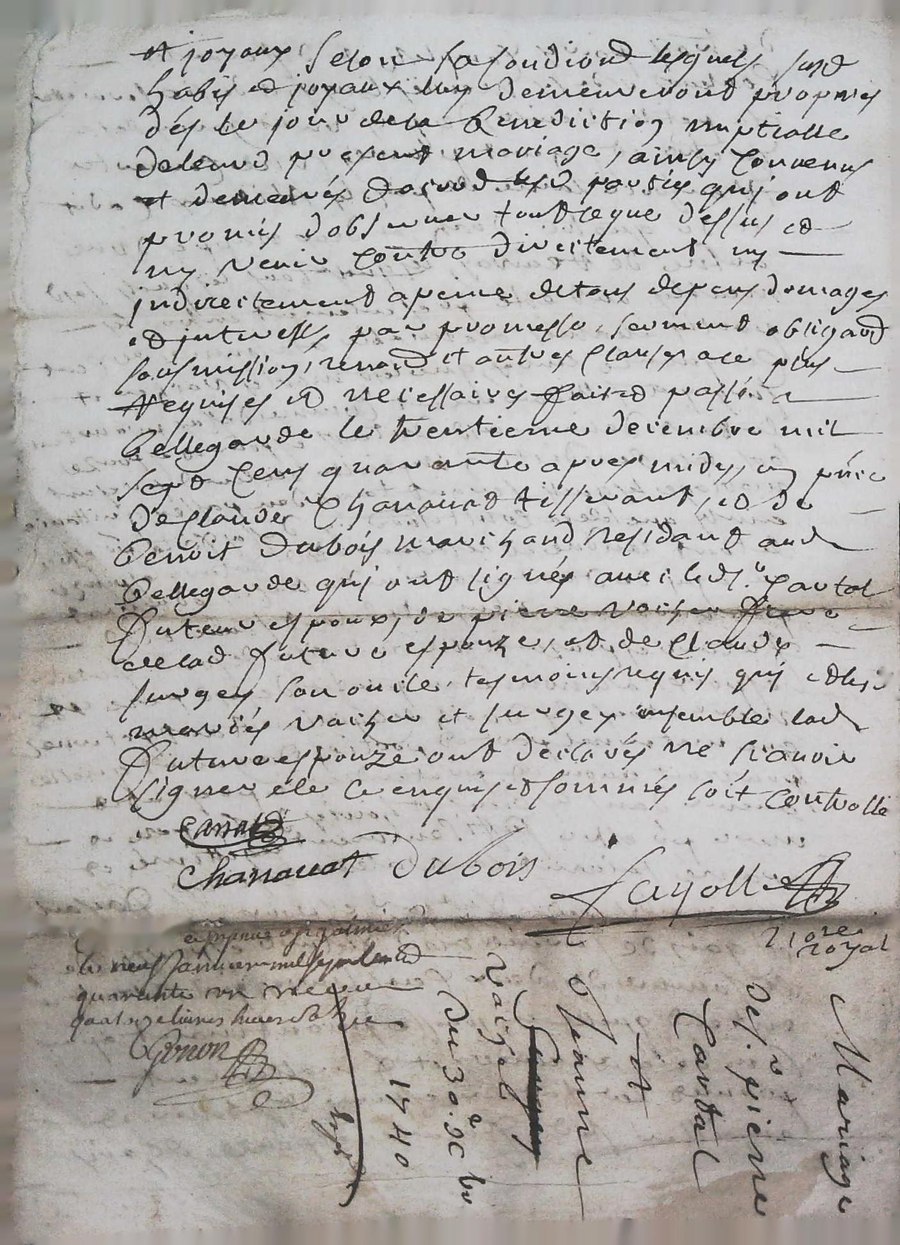 et joyaux selon sa condiond lesquels susd
habis et joyaux luy demeureront propres
des le jour de la benediction nuptialle
de leurd present mariage, ainsy convenus
et demeurés dacord lesd parties qui ont
promis dobserver tout ce que dessus et
ny venir contre directement ny
indirectement a peine de tous depens domages
et interests par promesse, serment obligaond
soumissions, renond et autres clauses a ce plus
requises et necessaires fait et passé a
bellegarde le trentieme decembre mil
sept cens quarante apres midy, en pñce
de Claude Chanauat tisserant, et de
benoit dubois marchand residant aud
bellegarde qui ont signés avec led sr. Cartal
futeur espoux, de pierre Voisin frere
de lad future espouze, et de Claude
surgey son oncle tesmoins requis qui et les
mariés voisin et surgey ensemble lad
future espouze ont declarés ne sçavoir
signer de ce enquis et sommés soit controllé
Cartal
Chanauat Dubois
fayolle
nore royal
a st galmier
le neuf janvier mil sept cend
quarante un receu
quatre livres
Gonon
Mariage
de sr. pierre
Cartal
et
Jeanne
Voizel
du 30e. xbre
1740